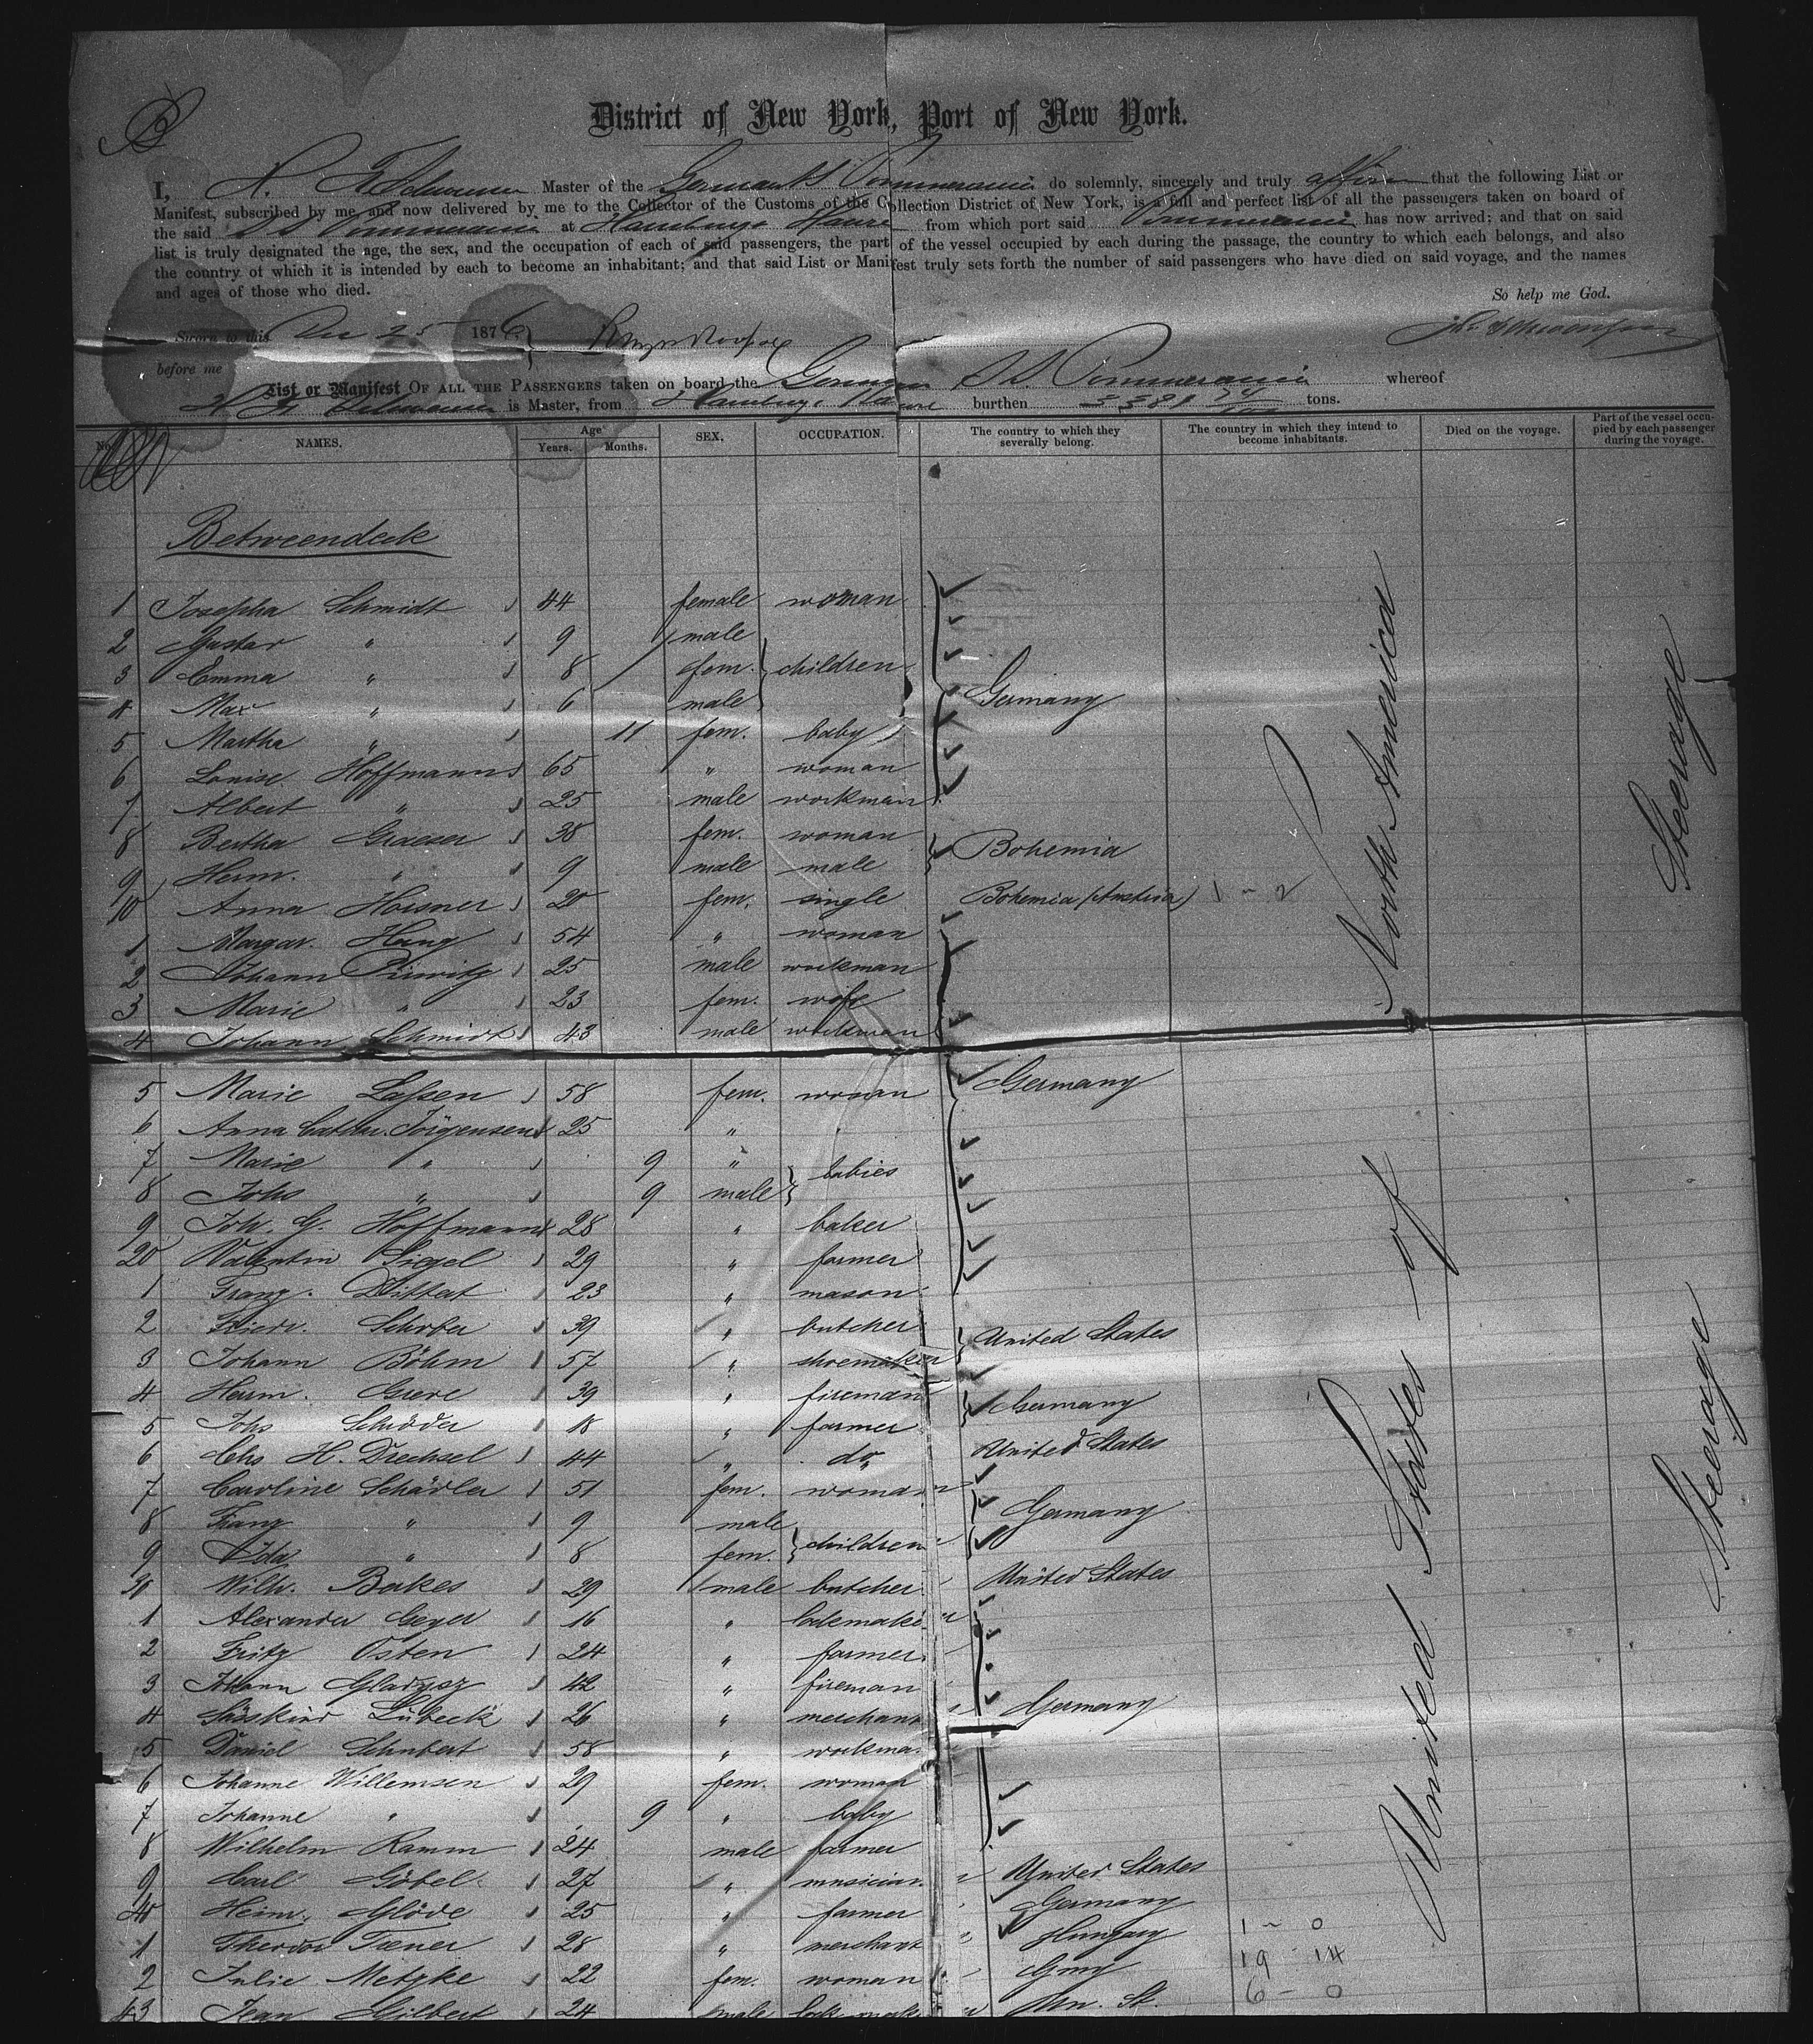 B
District of New York, Port of New York.
I, H. F. Schwensen Master of the German SS Pommerania do solemnly, sincerely and truly affirm that the following List or
Manifest, subscribed by me, and now delivered by me to the Collector of the Customs of the Collection District of New York, is a full and perfect list of all the passengers taken on board of
the said SS Pommerania at Hamburg & Havre from which port said Pommerania has now arrived; and that on said
list is truly designated the age, the sex, and the occupation of each of said passengers, the part of the vessel occupied by each during the passage, the country to which each belongs, and also
the country of which it is intended by each to become an inhabitant; and that said List or Manifest truly sets forth the number of said passengers who have died on said voyage, and the names
and ages of those who died.
So help me God.
Sworn to this Dec 25 1876
before me
List or Manifest OF ALL THE PASSENGERS taken on board the German SS. Pommerania whereof
is Master, from Hamburg & Havre burthen tons.
No. NAMES. Age Years. Months. SEX. OCCUPATION. The country to which they severally belong. The country in which they intend to become inhabitants. Died on the voyage. Part of the vessel occupied by each passenger during the voyage.
Betweendeck
1 Josepha Schmidt 44 female woman
2 Gustav " 9 male
3 Emma " 8 fem. children
4 Max " 6 male Germany
5 Martha " 11 fem. baby
6 Louise Hoffmann 65 " woman
7 Albert " 25 male workman
8 Bertha Graeser 38 fem. woman Bohemia
9 Herm. " 9 male male
10 Anna Hoisner 20 fem. single Bohemia (Austria) 1 - 2
1 Margar. Haug 54 " woman
2 Johann 25 male workman
3 Marie " 23 fem. wife
4 Johann Schmidt 43 male workman
5 Marie Lassen 58 fem. woman Germany
6 Anna Cathr. Jörgensen 25 " "
7 Marie " 9 " babies
8 Johs " 9 male
9 Joh. G. Hoffmann 28 " baker
20 Valentin Siegel 29 " farmer
1 Franz Dittert 23 " mason
2 Friedr. 39 " butcher United States
3 Johann Böhm 57 " shoemaker
4 Herm. Greve 39 " fireman Germany
5 Johs Schröder 18 " farmer
6 Chs H. Drechsel 44 " do United States
7 Caroline Schädler 51 fem. woman
8 Franz " 9 male Germany
9 Ida " 8 fem. children
30 Wilh. Bakes 29 male butcher United States
1 Alexander Geyer 16 "
2 Fritz Osten 24 " farmer
3 Johann Gladysz 42 " fireman
4 Süsskind Lübeck 26 " merchant Germany
5 Daniel Schubert 58 " workman
6 Johanne Willemsen 29 fem. woman
7 Johanne " 9 " baby
8 Wilhelm Ramm 24 male farmer
9 Carl Göbel 27 " musician United States
40 Heinr. Glöde 25 " farmer Germany
1 Theodor Trener 28 " merchant Hungary 1 - 0
2 Julie Metzke 22 fem. woman Gmy 19 - 14
43 Jean Gilbert 24 male Un. St. 6 - 0
United States of North America
Steerage
Steerage